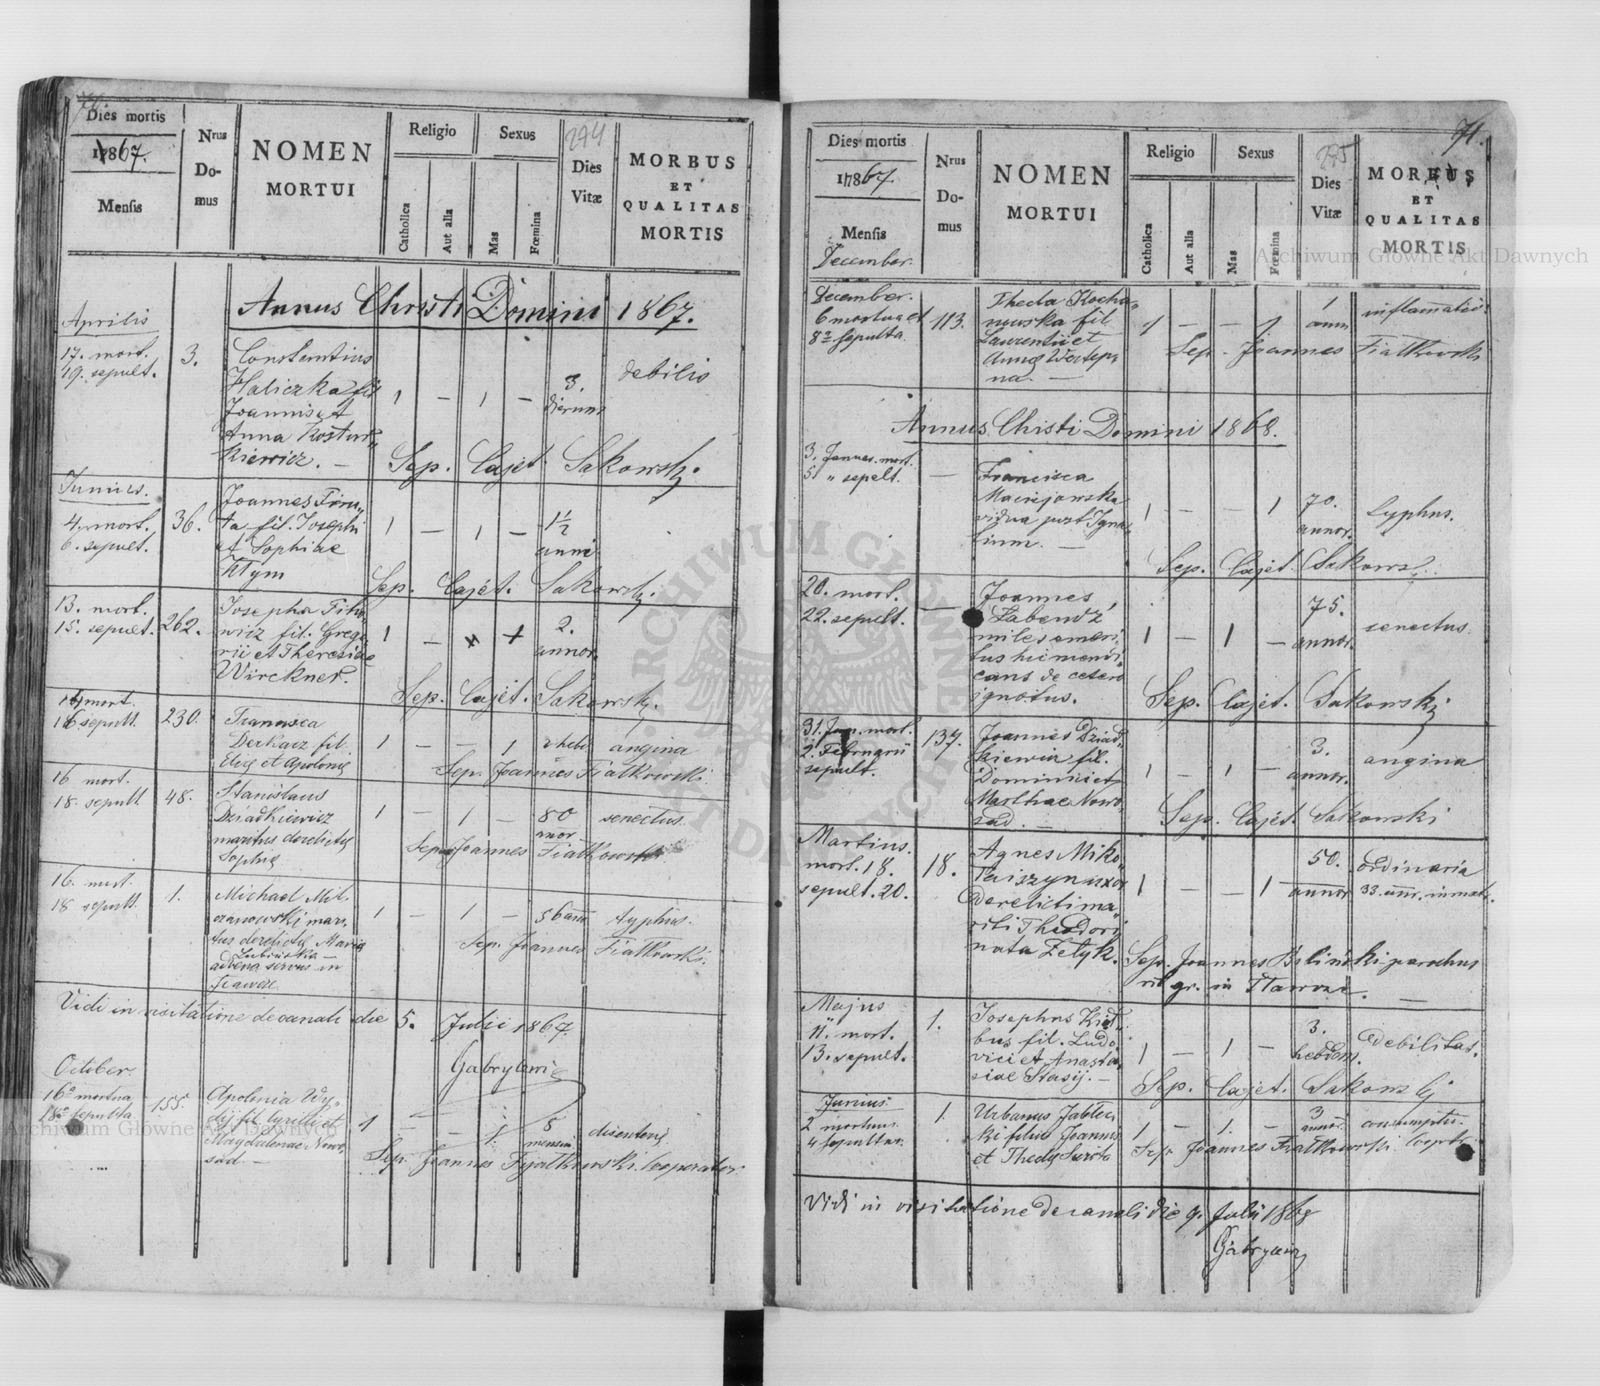 Dies mortis
1867.
Mensis
Nrus
Do-
mus
NOMEN
MORTUI
Religio
Catholica
Aut alia
Sexus
Mas
Fœmina
244
Dies
Vitæ
MORBUS
ET
QUALITAS
MORTIS
Annus Christi Domini 1867.
Aprilis
17. mort.
19. sepult.
3.
Constantius
Haliczka fil
Joannis et
Anna Kostur„
kiewicz. —
1 — 1 —
8.
dierum
debilis
Sep. Cajet. Sakowski.
Junius.
4. mort.
6. sepult.
36.
Joannes
ta fil. Josephi
et Sophiae
Kłym
1 — 1 —
1½
anni
Sep. Cajet. Sakowski.
13. mort.
15. sepult.
262.
Josepha
wicz fil. Grego
rii et Theresiae
Wirckner.
1 —
2.
annor.
Sep. Cajet. Sakowski.
14 mort.
16 sepult
230.
Francisca
Derkacz fil.
et Apoloniæ
1 — — 1
angina
Sep. Joannes Fiałkowski
16 mort.
18. sepult
48.
Stanislaus
Dziadkiewicz
maritus derelictæ
Sophiæ
1 — 1 —
80
senectus
Sep. Joannes Fiałkowski
16. mort.
18 sepult
1.
Michael Mil„
czanowski mari
tus derelictæ Maria
advena servus in
1 — 1 —
56 ann
typhus.
Sep. Joannes Fiałkowski.
Vidi in visitatione decanali die 5. Julii 1867.
October
16ª mortua
18ª sepulta
155.
Apolonia
fil. Cyrilli et
Magdalenae Nowo
sad. —
1 — — 1.
5
mensium
Sep. Joannes Fijałkowski Cooperator.
71.
Dies mortis
1867.
Mensis
December.
Nrus
Do-
mus
NOMEN
MORTUI
Religio
Catholica
Aut alia
Sexus
Mas
Fœmina
245
Dies
Vitæ
MORBUS
ET
QUALITAS
MORTIS
December.
6 mortua et
8ª sepulta
113.
Thecla Kocha„
nowska fil
Laurentii et
Annæ
na. —
1 — — 1
1
anni
inflammatio.
Sep. Joannes Fiałkowski
Annus Christi Domini 1868.
3. Januar. mort.
5 „ sepelt.
—
Francisca
Maciejowska
vidua post Igna„
tium. —
1 — — 1
70.
annor.
typhus.
Sep. Cajet. Sakowski.
20. mort.
22. sepult.
—
Joannes
Łabendź
miles emeri„
tus hic mendi„
cans de cetero
ignotus.
1 — 1 —
75.
annor.
senectus.
Sep. Cajet. Sakowski
31. Jan. mort.
2. Februarii
sepult.
137.
Joannes Dziad„
kiewicz fil.
Dominici et
Marthae Nowo
sad. —
1 — 1 —
3.
annor.
angina
Sep. Cajet. Sakowski
Martius.
mort. 18.
sepult. 20.
18.
Agnes Miko
łaiszyn uxor
derelicti ma„
riti Theodori
nata Zełyk.
1 — — 1
50.
annor
ordinaria
Sep. Joannes Biliński parochus
rit gr. in
Majus
11. mort.
13. sepult.
1.
Josephus
bus fil. Ludo„
vici et Anasta„
siae Stasij. —
1 — 1 —
3.
hebdom.
debilitat.
Sep. Cajet. Sakowski
Junius
2 mortuus
4 sepultus.
1.
Urbanus Jabłec
ki filius Joannis
et Theclæ
1 — 1. —
3
annor.
Sep. Joannes Fiałkowski Coop.
Vidi in visitatione decanali die 9. Julii 1868
ARCHIWUM GŁÓWNE AKT DAWNYCH
Archiwum Główne Akt Dawnych
Archiwum Główne Akt Dawnych